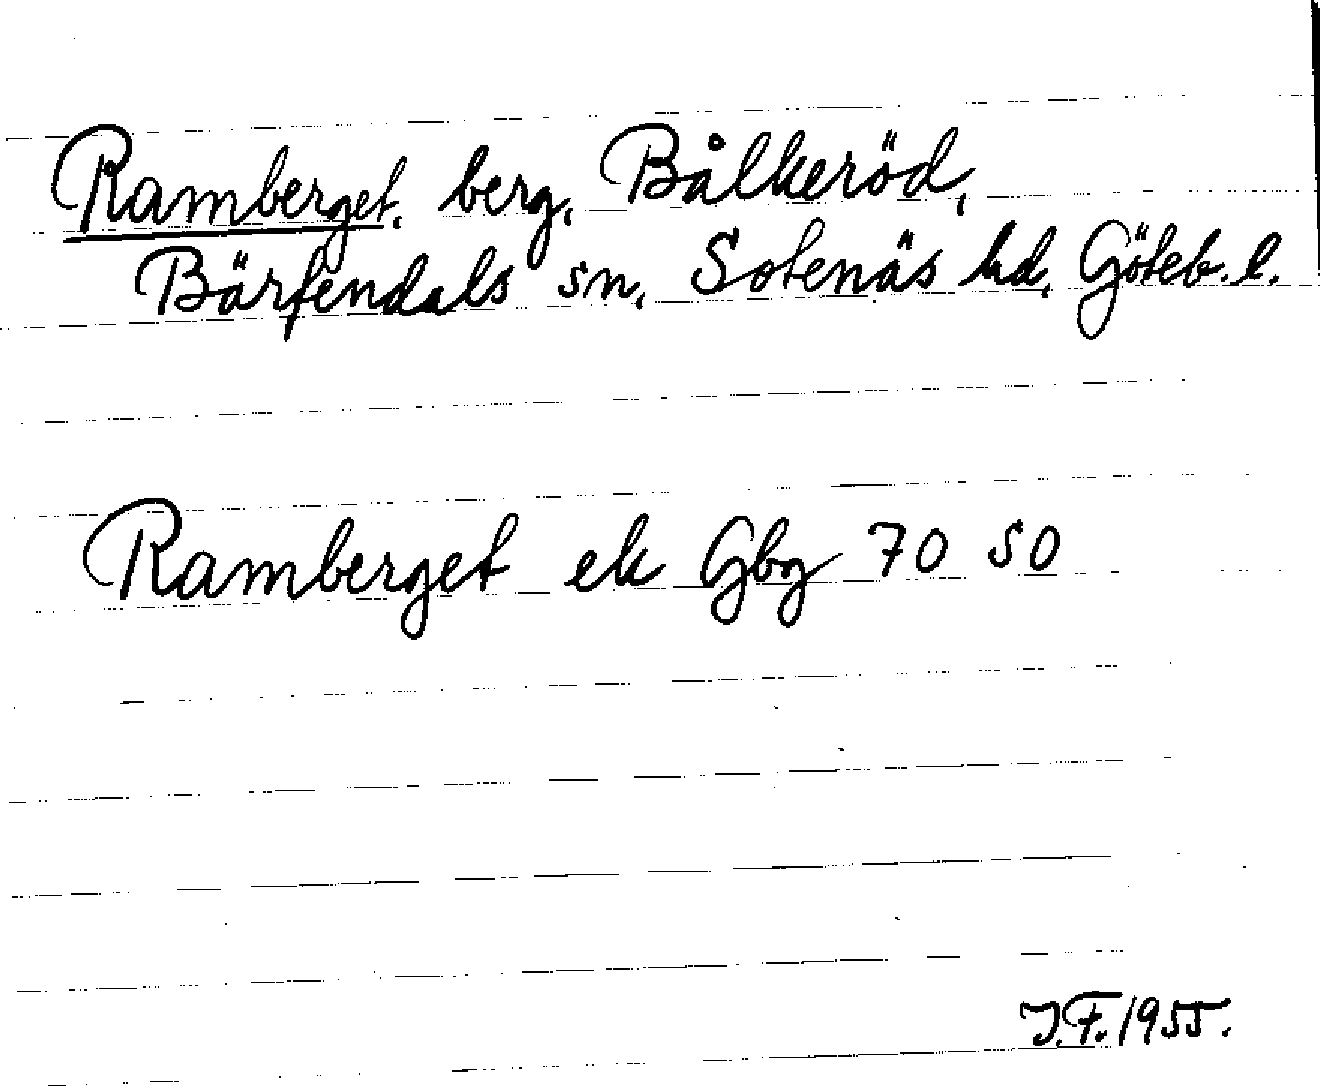 Ramberget, berg, Bålkeröd,
Bärfendals sn, Sotenäs hd, Göteb. l.
Ramberget ek Gbg 70 50
J.F. 1955.